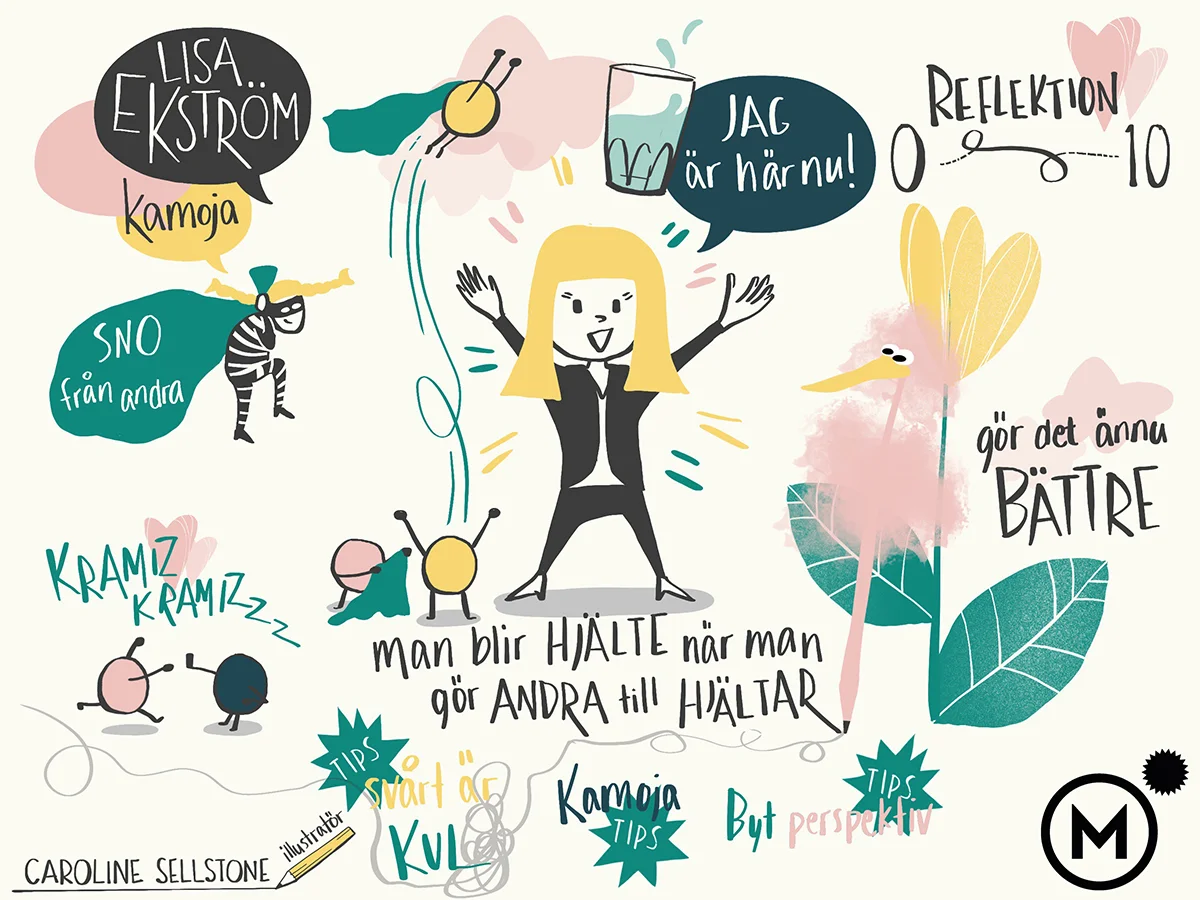 LISA
EKSTRÖM
Kamoja
JAG
är här nu!
REFLEKTION
0 10
SNO
från andra
gör det ännu
BÄTTRE
KRAMIZ
KRAMIZZZ
man blir HJÄLTE när man
gör ANDRA till HJÄLTAR
TIPS
svårt är
KUL
Kamoja
TIPS
TIPS
Byt perspektiv
illustratör
CAROLINE SELLSTONE
M